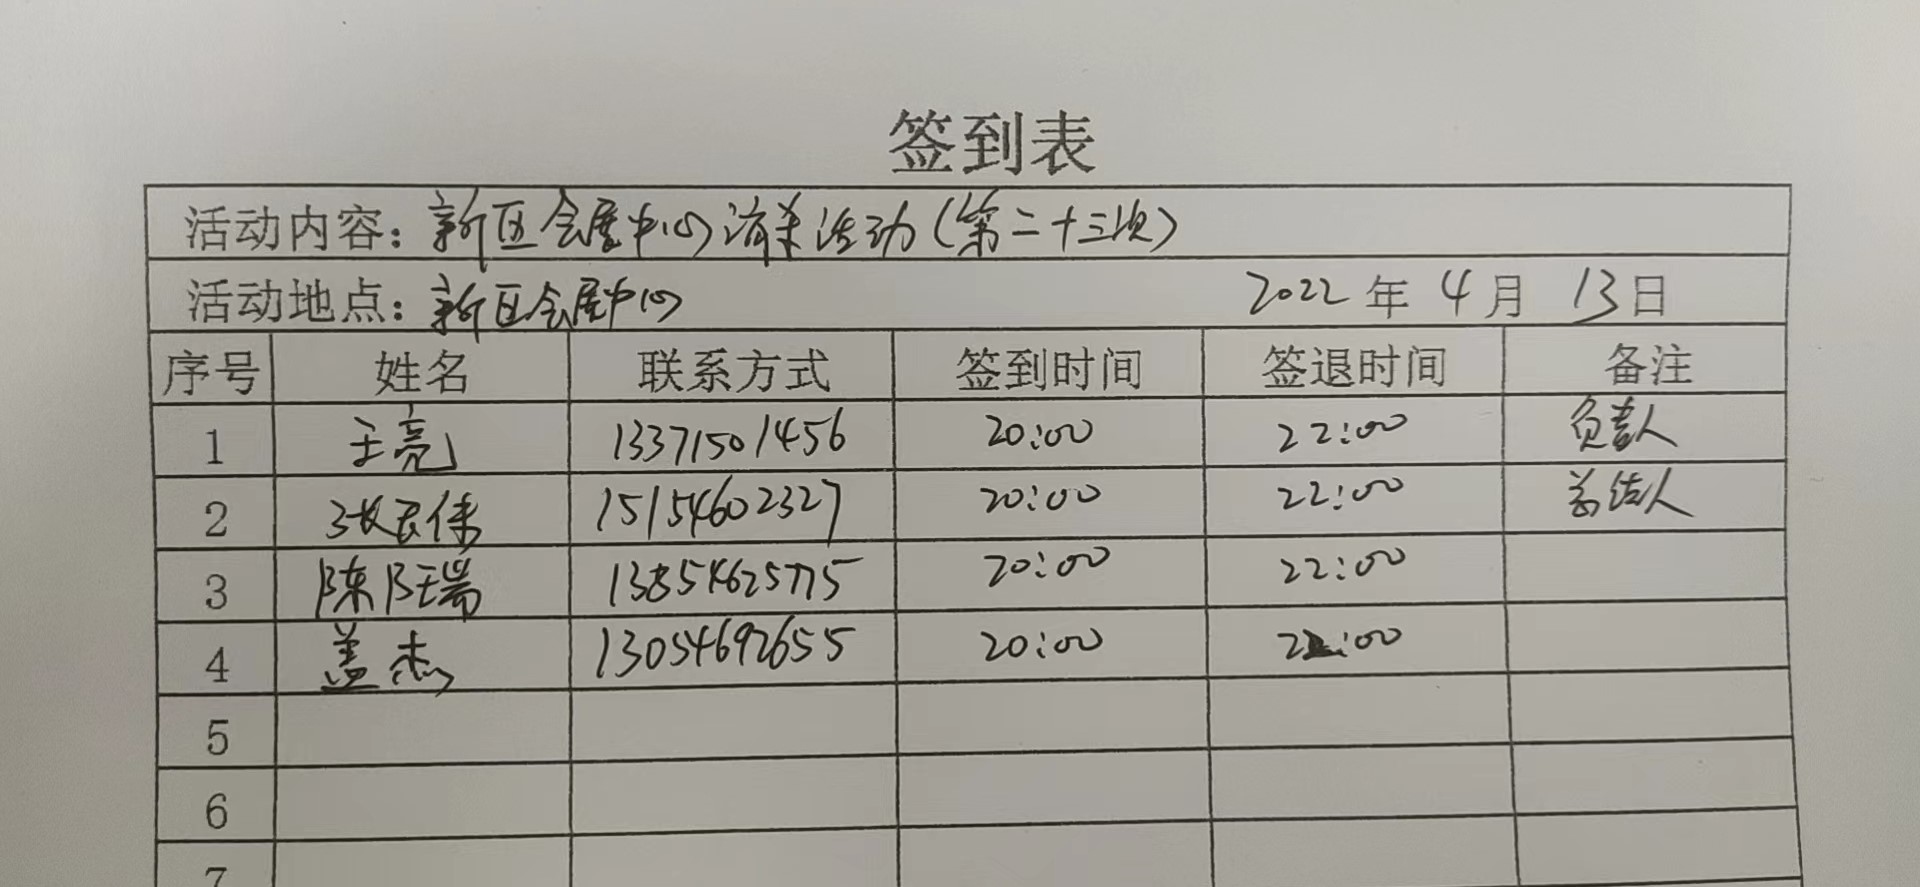 签到表
活动内容：新区会展中心消杀活动（第二十三次）
活动地点：新区会展中心 2022年4月13日
序号 姓名 联系方式 签到时间 签退时间 备注
1 王亮 13371501456 20:00 22:00 负责人
2 15154602327 20:00 22:00 总结人
3 陈 瑞 13854625775 20:00 22:00
4 盖杰 13054692655 20:00 22:00
5
6
7